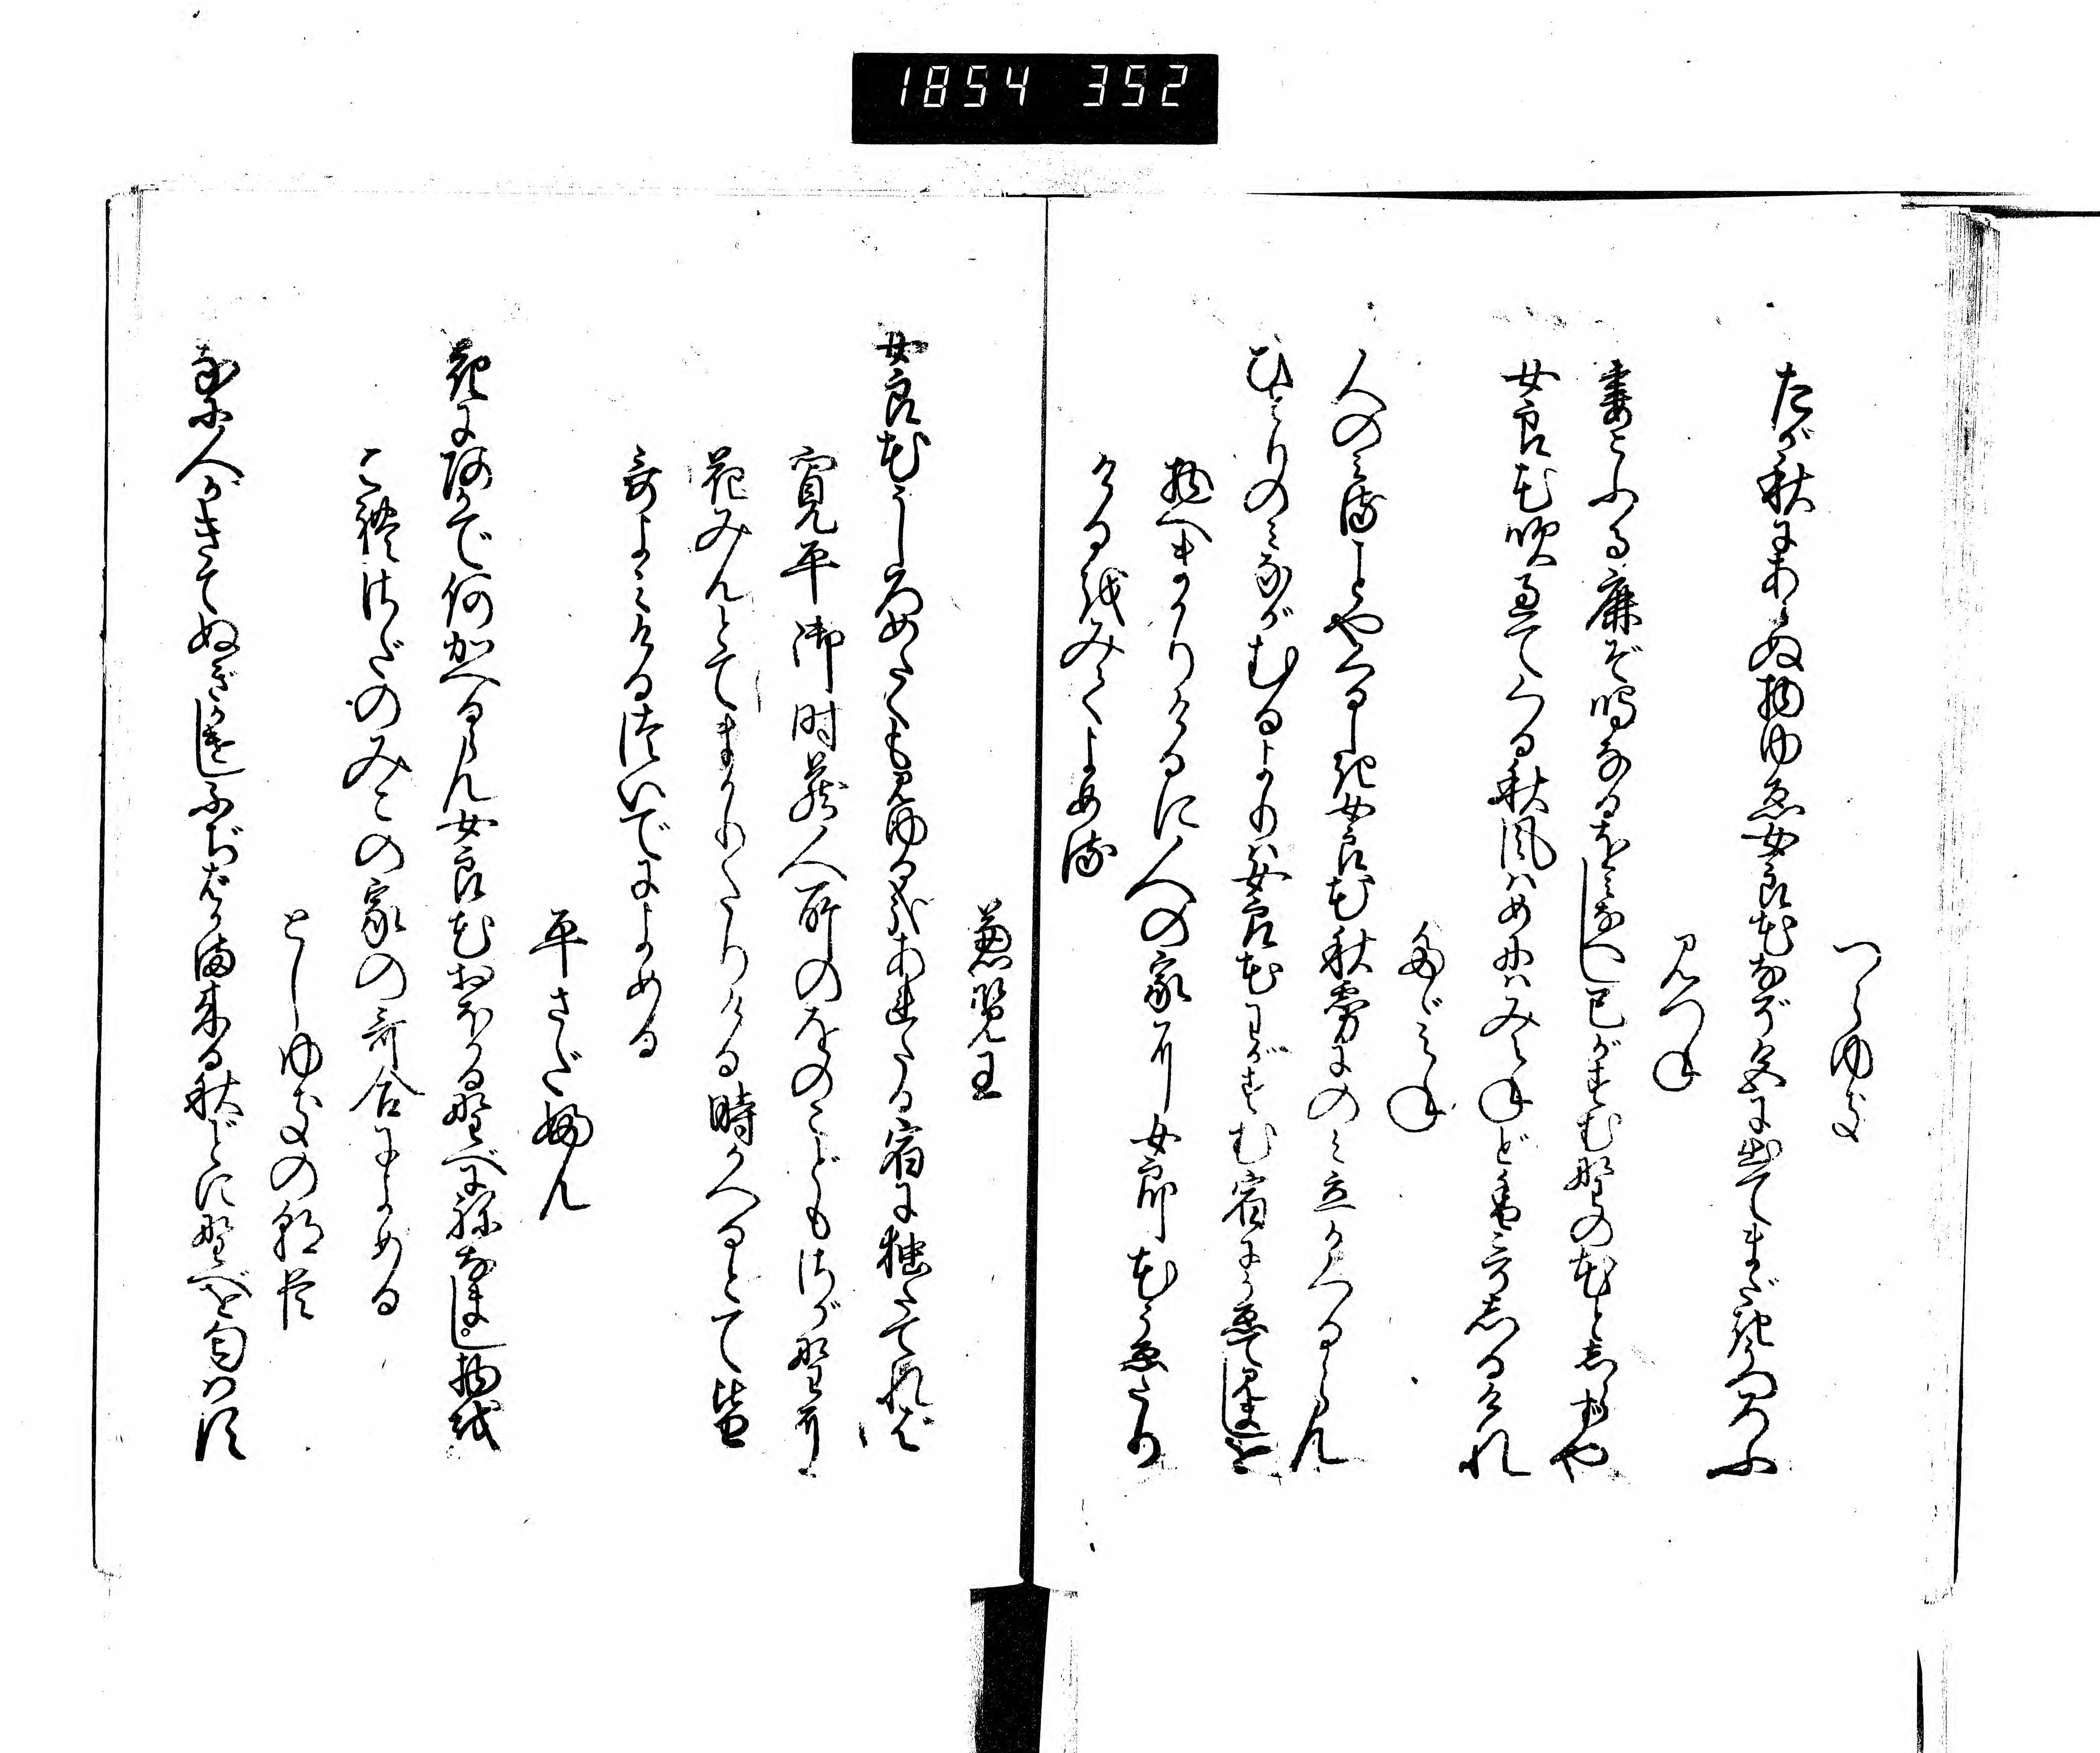 1854 352
つらゆき
たが秋にあらぬ物ゆゑ女良花なぞ色に出てまだき移ろふ
みつね
妻こふる鹿ぞ鳴なるをみなへし己がすむ野の花としらずや
女良花吹過てくる秋風はめにはみえねど香こそしるけれ
ただみね
人のみることやくるしき女良花秋霧にのみ立かくるらん
ひとりのみながむるよりは女良花わがすむ宿にうゑてみましを
物へまかりけるに人の家に女郎花うゑたり
けるをみてよめる
兼覧王
女良花うしろめたくも見ゆる哉あれたる宿に独たてれば
寛平御时蔵人所のをのこどもさが野に
花みんとてまかりたりける時かへるとて皆
哥よみけるついでによめる
平さだふん
花にあかで何かへるらん女良花おほかる野べにねなまし物を
これさだのみこの家の哥合によめる
としゆきの朝臣
なに人かきてぬぎかけしふぢばかま来る秋ごとに野べを匂はす